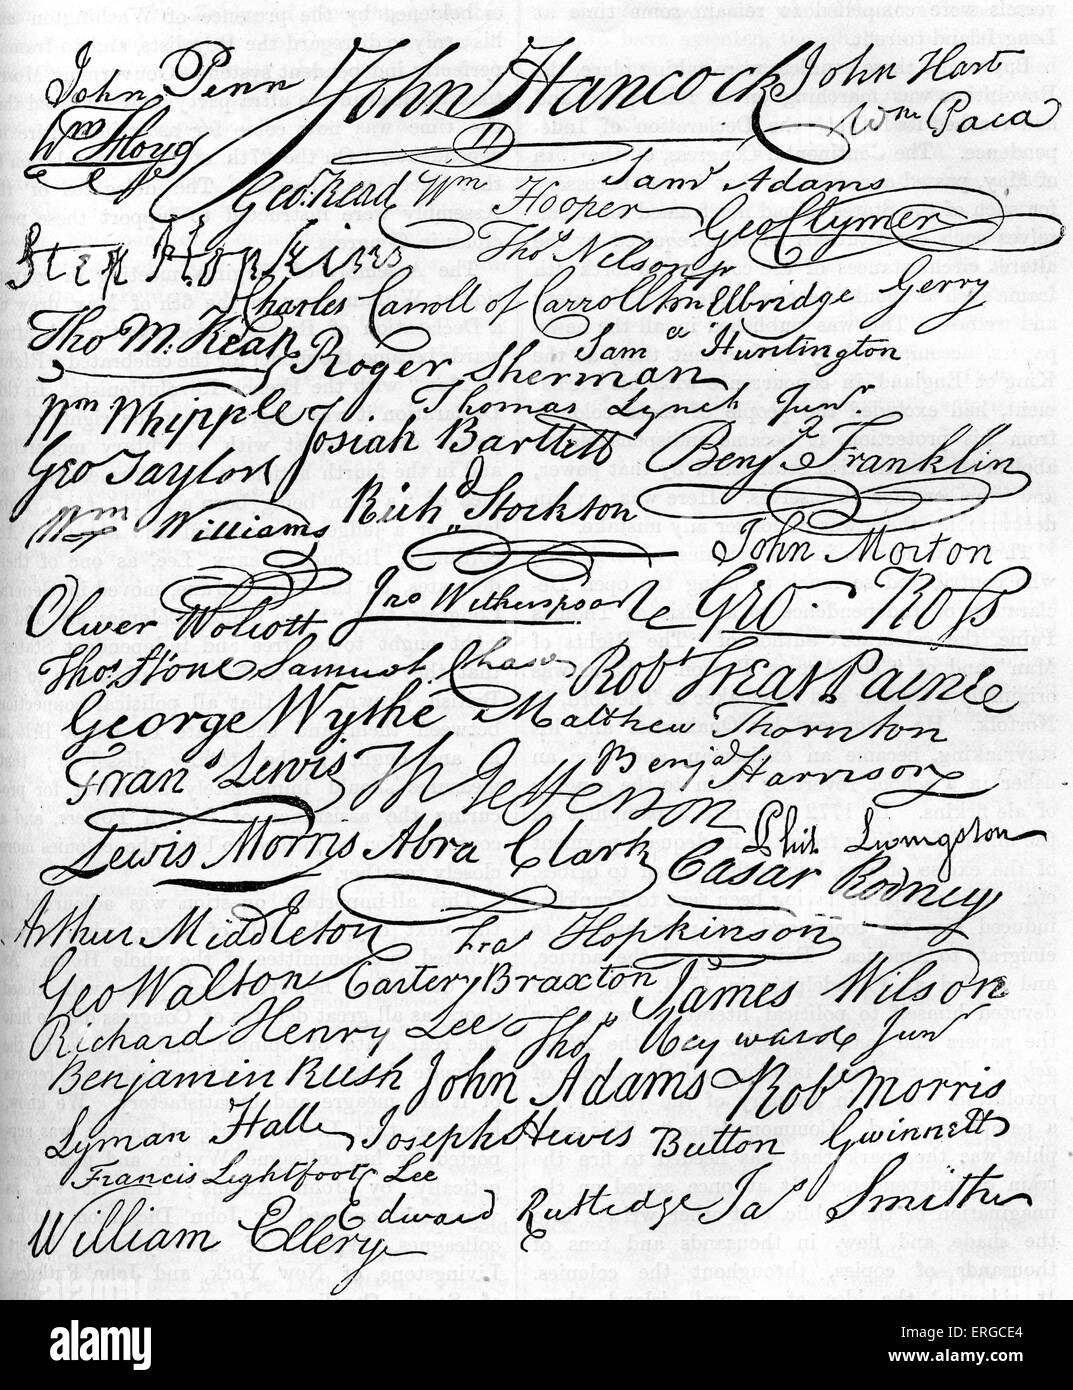 John Penn John Hancock John Hart
Wm Floyd Wm Paca
Geo. Read Wm Hooper Saml Adams
Geo Clymer
Step Hopkins Thos Nelson jr
Charles Carroll of Carrollton Elbridge Gerry
Tho M. Kean Roger Sherman Saml Huntington
Wm Whipple Thomas Lynch Junr.
Josiah Bartlett Benj Franklin
Geo Taylor Richd Stockton
Wm Williams John Morton
Oliver Wolcott Jno Witherspoon Geo. Ross
Thos. Stone Samuel Chase Robt Treat Paine
George Wythe Matthew Thornton
Frans. Lewis Th Jefferson Benja Harrison
Lewis Morris Abra Clark Phil. Livingston
Casar Rodney
Arthur Middleton Fras Hopkinson
Geo Walton Carter Braxton James Wilson
Richard Henry Lee Thos Heyward Junr
Benjamin Rush John Adams Robt Morris
Lyman Hall Joseph Hewes Button Gwinnett
Francis Lightfoot Lee
William Ellery Edward Rutledge Jas Smith
a alamy stock photo
ERGCE4
www.alamy.com